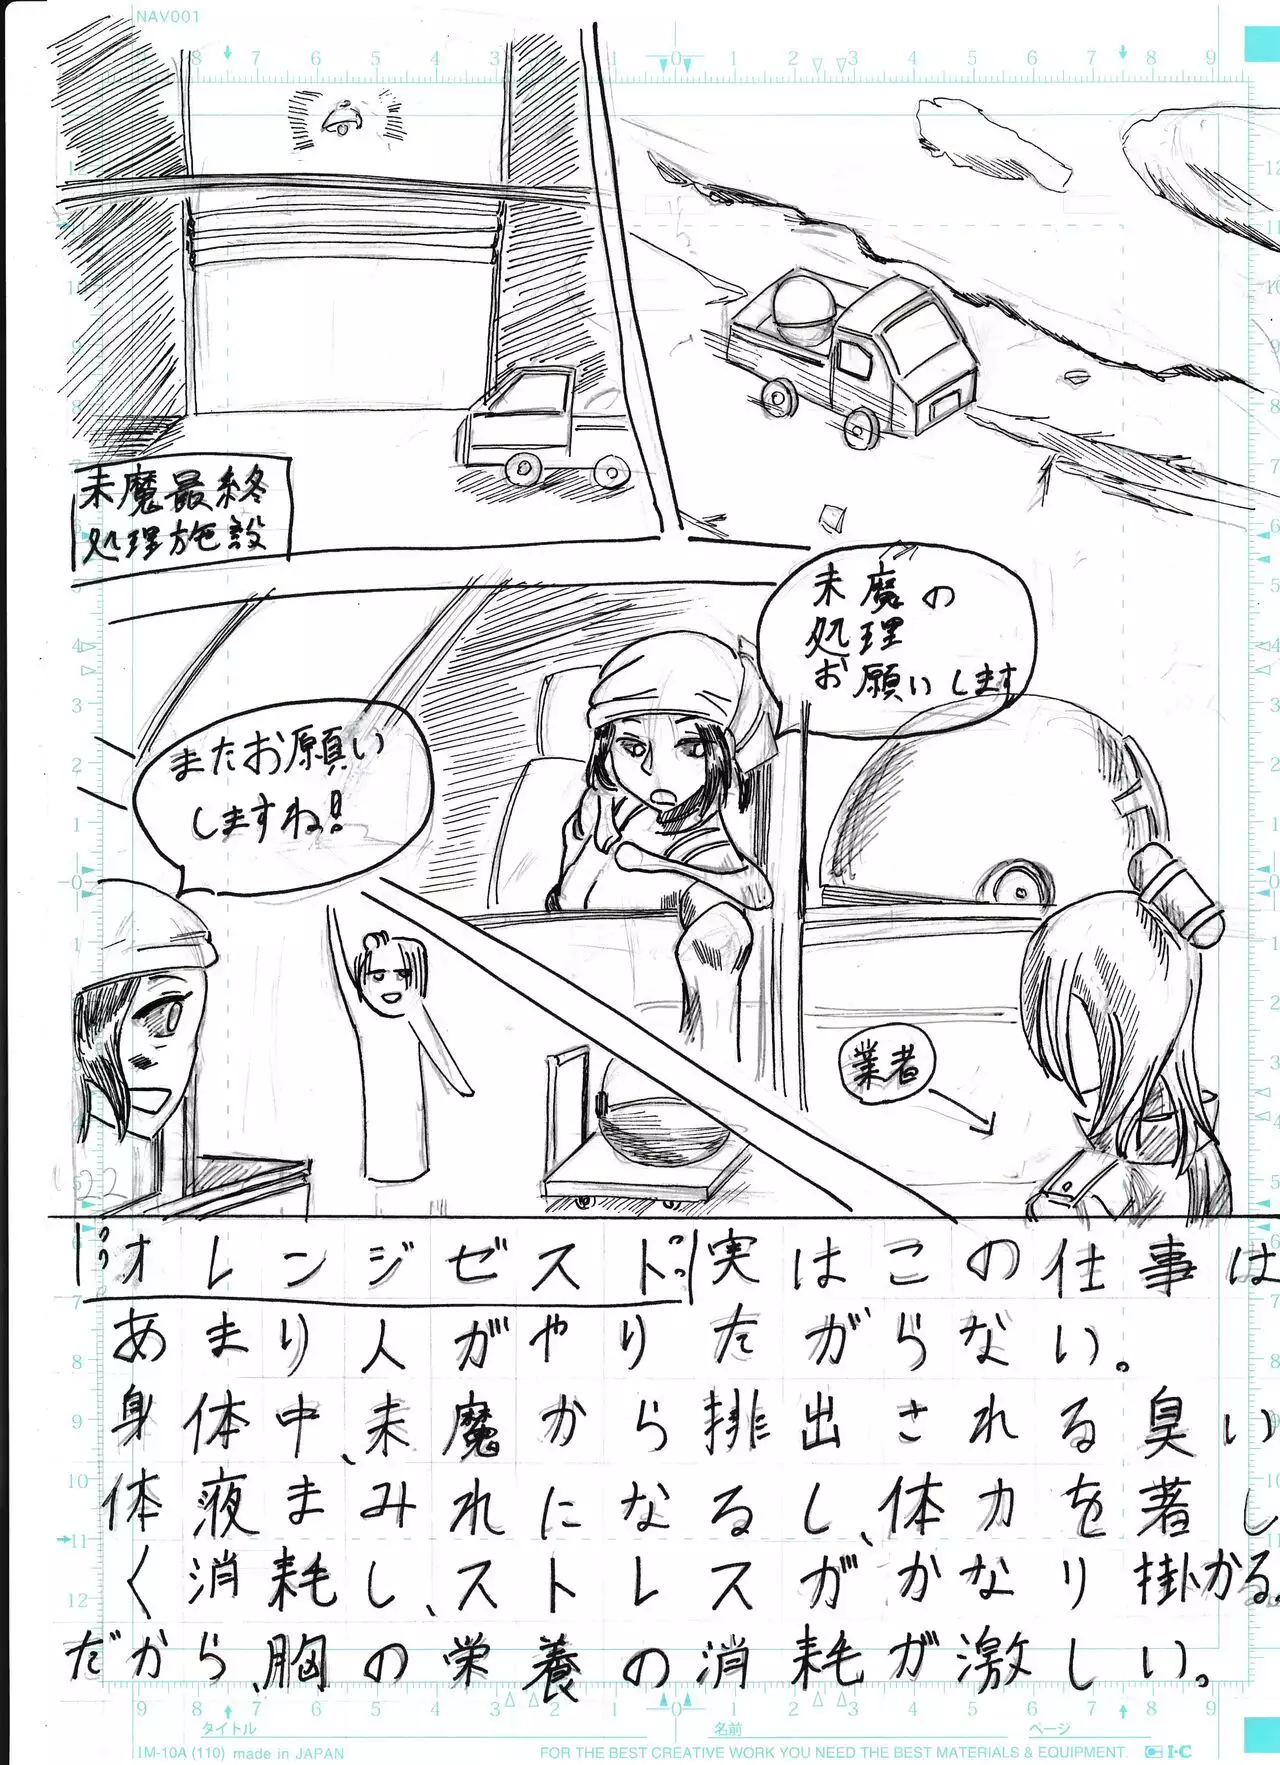 NAV001
9 8 7 6 5 4 3 2 1 0 1 2 3 4 5 6 7 8 9
未魔最終
処理施設
未魔の
処理
お願いします
またお願い
しますね!
業者
22
オレンジゼスト 実はこの仕事は
あまり人がやりたがらない。
身体中、未魔から排出される臭い
体液まみれになるし、体力を著し
く消耗し、ストレスがかなり掛かる。
だから、胸の栄養の消耗が激しい。
9 8 7 6 5 4 3 2 1 0 1 2 3 4 5 6 7 8 9
タイトル 名前 ページ
IM-10A (110) made in JAPAN FOR THE BEST CREATIVE WORK YOU NEED THE BEST MATERIALS & EQUIPMENT. I・C